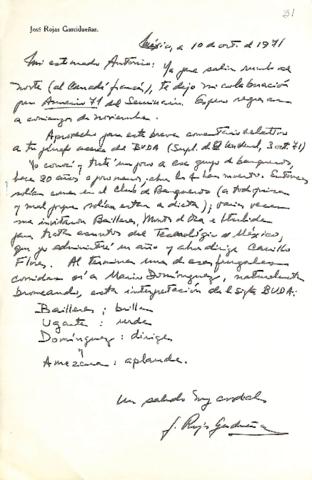 31
José Rojas Garcidueñas.
México, a 10 de oct. de 1971
Mi estimado Antonio: Ya que salir rumbo al
norte (al Canadá francés), te dejo mi colaboración
para Anuario 71 del Seminario. Espero regresar
a comienzos de noviembre.
Aprovecho para este breve comentario relativo
a tu párrafo acerca del BUDA (Supl. de El Universal, 3 oct. 71)
Yo conocí y traté un poco a ese grupo de banqueros,
hace 20 años o poco menos, ahora los 4 han muerto. Entonces
solían comer en el Club de Banqueros (a todo
y mal porque solían estar a dieta); varias veces
me invitaron Bailleres, Monts de Oca e Iturbide
para tratar asuntos del Tecnológico de México,
que yo administré un año y ahora dirige Carrillo
Flores. Al terminar una de esas frugales
comidas oí a Mario Domínguez, naturalmente
bromeando, esta interpretación de la sigla BUDA:
Bailleres: brilla
Ugarte: urde
Domínguez: dirige
y
Amezcua: aplaude.
Un saludo muy cordial
J. Rojas Garcidueñas